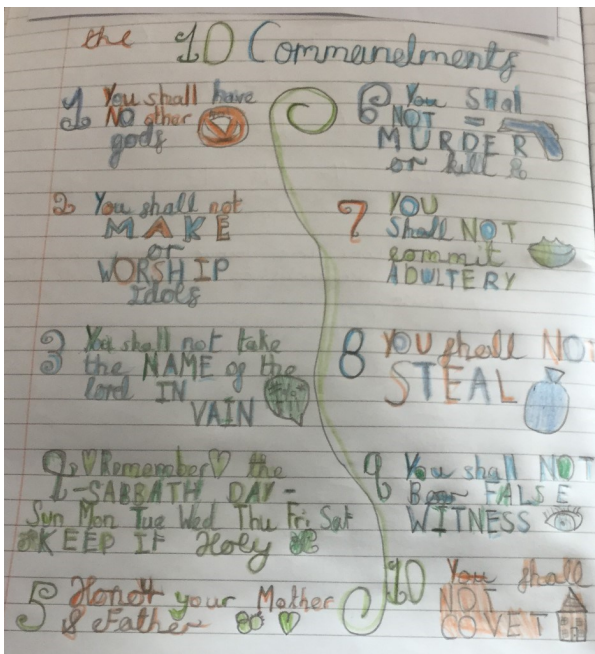 the 10 Commandments
1 You shall have
NO other
gods
2 You shall not
MAKE
or
WORSHIP
Idols
3 You shall not take
the NAME of the
lord IN
VAIN
Remember the
-SABBATH DAY-
Sun Mon Tue Wed Thu Fri Sat
KEEP IT Holy
5 Honor your Mother
& Father
6 You SHal
NOT =
MURDER
or kill
7 YOU
Shall NOT
commit
ADULTERY
8 YOU shall NOT
STEAL
9 You shall NOT
Bear FALSE
WITNESS
10 You shall
NOT
COVET